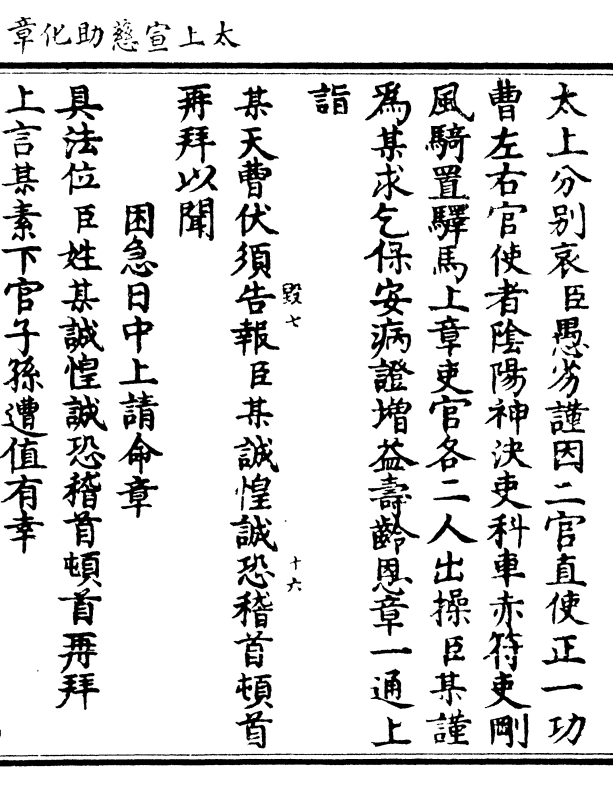 太上宣慈助化章
太上分別哀臣愚劣謹因二官直使正一功
曹左右官使者陰陽神決吏科車赤符吏剛
風騎置驛馬上章吏官各二人出操臣某謹
為某求乞保安病證增益壽齡恩章一通上
詣
毀七
十六
某天曹伏須告報臣某誠惶誠恐稽首頓首
再拜以聞
困急日中上請命章
具法位臣姓某誠惶誠恐稽首頓首再拜
上言某素下官子孫遭值有幸